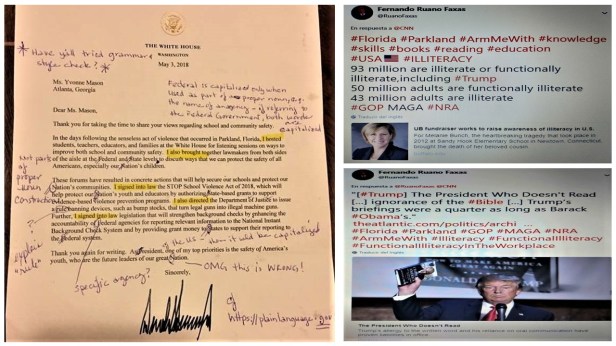 THE WHITE HOUSE
WASHINGTON
May 3, 2018
* Have y'all tried grammar &
style check? *
Ms. Yvonne Mason
Atlanta, Georgia
Federal is capitalized only when
used as part of a proper noun,
Dear Ms. Mason,
Thank you for taking the time to share your views regarding school and community safety.
In the days following the senseless act of violence that occurred in Parkland, Florida, I hosted
students, teachers, educators, and families at the White House for listening sessions on ways to
improve both school and community safety. I also brought together lawmakers from both sides
of the aisle at the Federal and State levels to discuss ways that we can protect the safety of all
Americans, especially our Nation's children.
These forums resulted in concrete actions that will help secure our schools and protect our
Nation's communities. I signed into law the STOP School Violence Act of 2018, which will
help protect our Nation's youth and educators by authorizing State-based grants to support
evidence-based violence prevention programs. I also directed the Department of Justice to issue
a rule banning devices, such as bump stocks, that turn legal guns into illegal machine guns.
Further, I signed into law legislation that will strengthen background checks by enhancing the
accountability of Federal agencies for reporting relevant information to the National Instant
Background Check System and by providing grant money to States to support their reporting to
the Federal system.
Thank you again for writing. As President, one of my top priorities is the safety of America's
youth, who are the future leaders of our great Nation.
Sincerely,
explain
"rule"
OMG this is WRONG!
specific agency?
https://plainlanguage.gov
Fernando Ruano Faxas
@RuanoFaxas
En respuesta a @CNN
#Florida #Parkland #ArmMeWith #knowledge
#skills #books #reading #education
#USA #ILLITERACY
93 million are illiterate or functionally
illiterate,including #Trump
50 million adults are functionally illiterate
43 million adults are illiterate
#GOP MAGA #NRA
Traducir del inglés
UB fundraiser works to raise awareness of illiteracy in U.S.
Fernando Ruano Faxas
@RuanoFaxas
En respuesta a @CNN
"[#Trump] The President Who Doesn't Read
[...] ignorance of the #Bible [...] Trump's
briefings were a quarter as long as Barack
#Obama's."
theatlantic.com/politics/archi...
#Florida #Parkland #GOP #MAGA #NRA
#ArmMeWith #Illiteracy #FunctionalIlliteracy
#FunctionalIlliteracyInTheWorkplace
Traducir del inglés
The President Who Doesn't Read